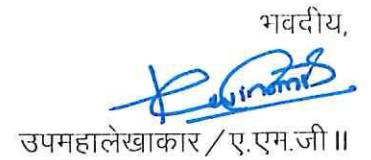 भवदीय,
उपमहालेखाकार / ए.एम.जी II